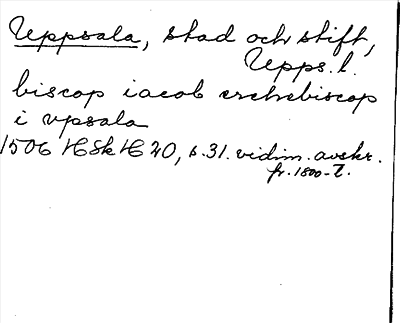 Uppsala, stad och stift,
Upps. l.
biscop iacob erchebiscop
i vpsala
1506 HSkH 20, s. 31. vidim. avskr.
fr. 1800-t.